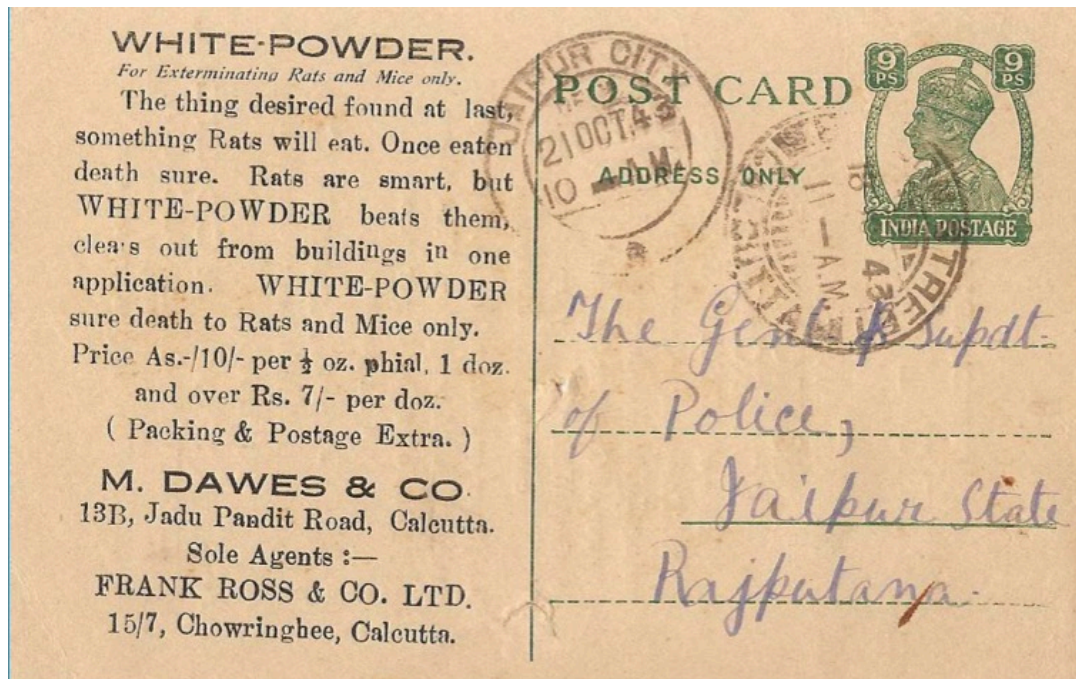 WHITE-POWDER.
For Exterminating Rats and Mice only.
The thing desired found at last,
something Rats will eat. Once eaten
death sure. Rats are smart, but
WHITE-POWDER beats them,
clears out from buildings in one
application. WHITE-POWDER
sure death to Rats and Mice only.
Price As.-/10/- per ½ oz. phial, 1 doz.
and over Rs. 7/- per doz.
( Packing & Postage Extra. )
M. DAWES & CO.
13B, Jadu Pandit Road, Calcutta.
Sole Agents :—
FRANK ROSS & CO. LTD.
15/7, Chowringhee, Calcutta.
JAIPUR CITY
21 OCT. 43
10 - A.M.
POST CARD
ADDRESS ONLY
9 PS
9 PS
INDIA POSTAGE
18
11 - A.M.
43
The Genl Supdt.
of Police,
Jaipur State
Rajputana.